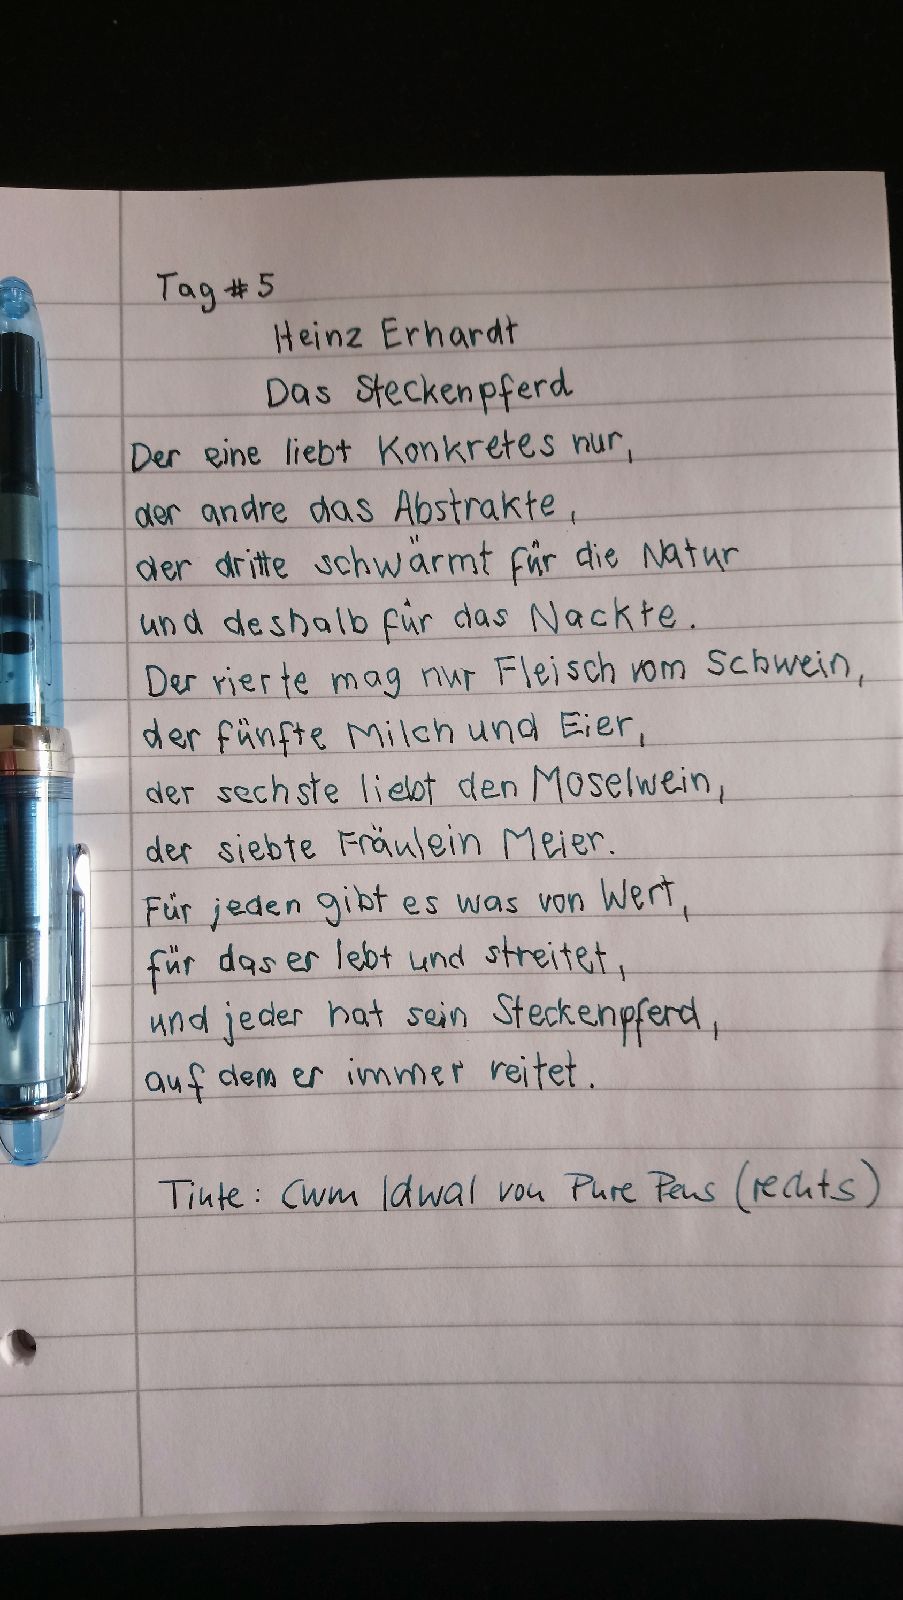 Tag #5
Heinz Erhardt
Das Steckenpferd
Der eine liebt Konkretes nur,
der andre das Abstrakte,
der dritte schwärmt für die Natur
und deshalb für das Nackte.
Der vierte mag nur Fleisch vom Schwein,
der fünfte Milch und Eier,
der sechste liebt den Moselwein,
der siebte Fräulein Meier.
Für jeden gibt es was von Wert,
für das er lebt und streitet,
und jeder hat sein Steckenpferd,
auf dem er immer reitet.
Tinte: Cwm Idwal von Pure Pens (rechts)